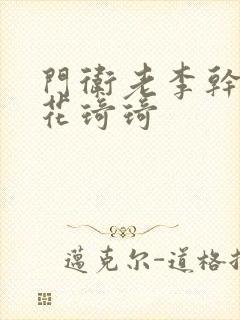 門衛老李幹
花琦琦
邁克尔-道格拉